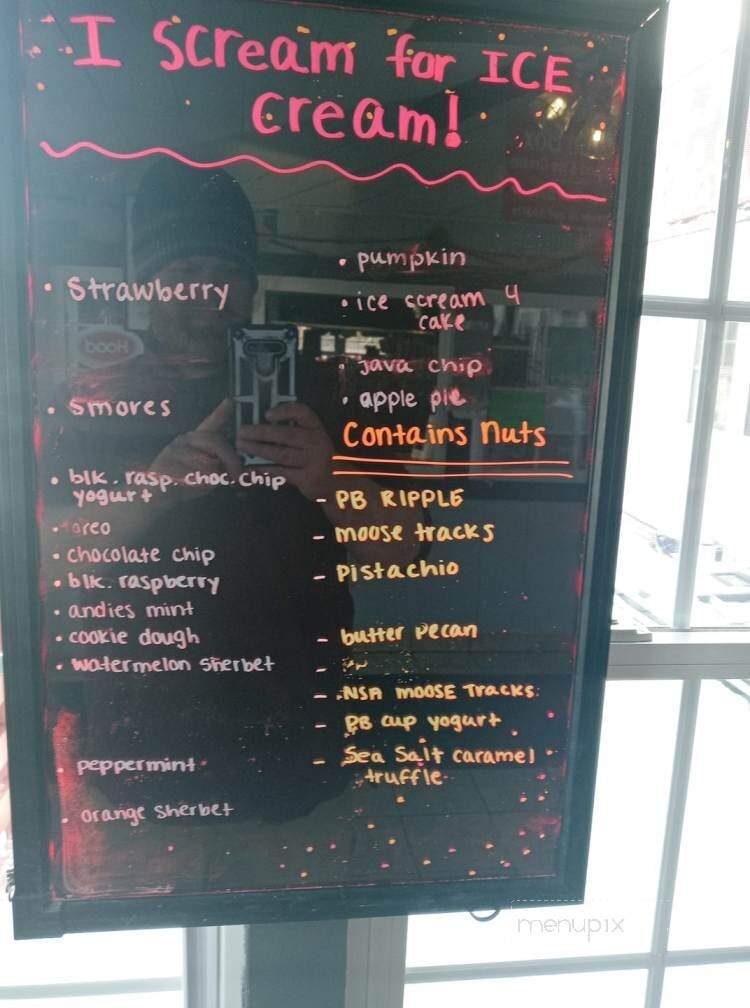 I Scream for ICE
cream!
• Strawberry
• Smores
• blk. rasp. choc. chip
yogurt
• oreo
• chocolate chip
• blk. raspberry
• andies mint
• cookie dough
• watermelon sherbet
peppermint
• orange sherbet
• pumpkin
• ice scream 4
cake
• java chip
• apple pie
Contains Nuts
- PB RIPPLE
- moose tracks
- Pistachio
- butter pecan
-
- NSA MOOSE Tracks
- PB cup yogurt
- Sea Salt caramel
truffle
Hood
menupix